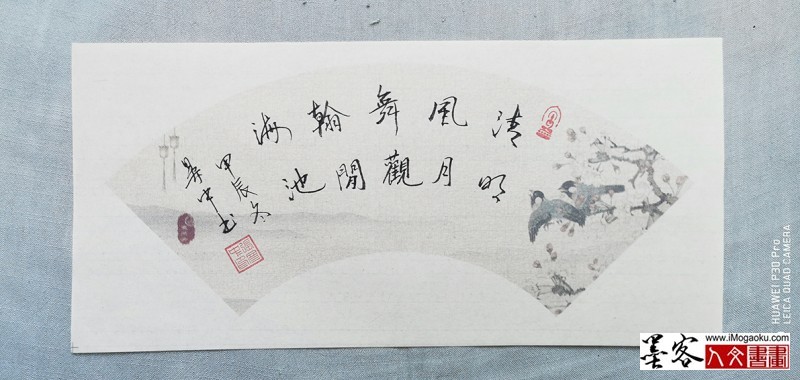 清風舞翰海
明月觀閒池
甲辰冬
中书
墨客
www.iMogaoku.com
人文書畫
HUAWEI P30 Pro
LEICA QUAD CAMERA